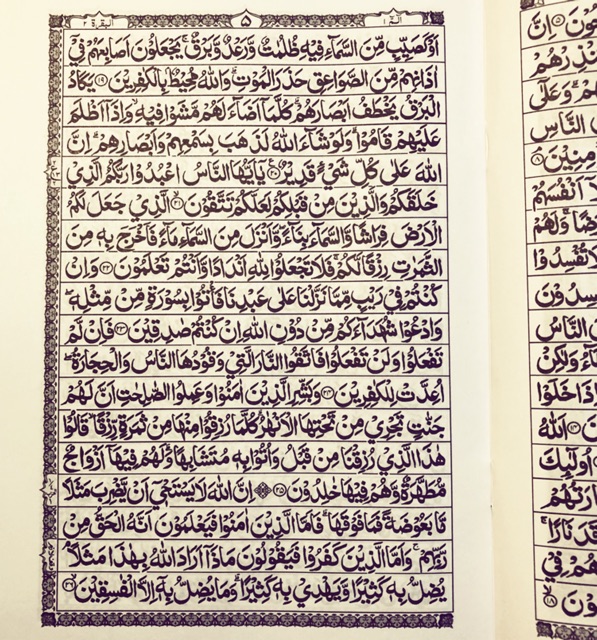 الٓمّٓ ١
۵
البقرة ٢
اَوْ كَصَيِّبٍ مِّنَ السَّمَآءِ فِيْهِ ظُلُمٰتٌ وَّرَعْدٌ وَّبَرْقٌ ۚ يَجْعَلُوْنَ اَصَابِعَهُمْ فِيْٓ
اٰذَانِهِمْ مِّنَ الصَّوَاعِقِ حَذَرَ الْمَوْتِ ؕ وَاللّٰهُ مُحِيْطٌۢ بِالْكٰفِرِيْنَ ⑲ يَكَادُ
الْبَرْقُ يَخْطَفُ اَبْصَارَهُمْ ؕ كُلَّمَآ اَضَآءَ لَهُمْ مَّشَوْا فِيْهِ ۙ وَاِذَآ اَظْلَمَ
عَلَيْهِمْ قَامُوْا ؕ وَلَوْ شَآءَ اللّٰهُ لَذَهَبَ بِسَمْعِهِمْ وَاَبْصَارِهِمْ ؕ اِنَّ
اللّٰهَ عَلٰى كُلِّ شَيْءٍ قَدِيْرٌ ⑳ يٰٓاَيُّهَا النَّاسُ اعْبُدُوْا رَبَّكُمُ الَّذِيْ
خَلَقَكُمْ وَالَّذِيْنَ مِنْ قَبْلِكُمْ لَعَلَّكُمْ تَتَّقُوْنَ ㉑ الَّذِيْ جَعَلَ لَكُمُ
الْاَرْضَ فِرَاشًا وَّالسَّمَآءَ بِنَآءً وَّاَنْزَلَ مِنَ السَّمَآءِ مَآءً فَاَخْرَجَ بِهٖ مِنَ
الثَّمَرٰتِ رِزْقًا لَّكُمْ ۚ فَلَا تَجْعَلُوْا لِلّٰهِ اَنْدَادًا وَّاَنْتُمْ تَعْلَمُوْنَ ㉒ وَاِنْ
كُنْتُمْ فِيْ رَيْبٍ مِّمَّا نَزَّلْنَا عَلٰى عَبْدِنَا فَاْتُوْا بِسُوْرَةٍ مِّنْ مِّثْلِهٖ ۪
وَادْعُوْا شُهَدَآءَكُمْ مِّنْ دُوْنِ اللّٰهِ اِنْ كُنْتُمْ صٰدِقِيْنَ ㉓ فَاِنْ لَّمْ
تَفْعَلُوْا وَلَنْ تَفْعَلُوْا فَاتَّقُوا النَّارَ الَّتِيْ وَقُوْدُهَا النَّاسُ وَالْحِجَارَةُ ۖ
اُعِدَّتْ لِلْكٰفِرِيْنَ ㉔ وَبَشِّرِ الَّذِيْنَ اٰمَنُوْا وَعَمِلُوا الصّٰلِحٰتِ اَنَّ لَهُمْ
جَنّٰتٍ تَجْرِيْ مِنْ تَحْتِهَا الْاَنْهٰرُ ؕ كُلَّمَا رُزِقُوْا مِنْهَا مِنْ ثَمَرَةٍ رِّزْقًا ۙ قَالُوْا
هٰذَا الَّذِيْ رُزِقْنَا مِنْ قَبْلُ ۙ وَاُتُوْا بِهٖ مُتَشَابِهًا ؕ وَلَهُمْ فِيْهَآ اَزْوَاجٌ
مُّطَهَّرَةٌ ۙ وَّهُمْ فِيْهَا خٰلِدُوْنَ ㉕ اِنَّ اللّٰهَ لَا يَسْتَحْيٖٓ اَنْ يَّضْرِبَ مَثَلًا
مَّا بَعُوْضَةً فَمَا فَوْقَهَا ؕ فَاَمَّا الَّذِيْنَ اٰمَنُوْا فَيَعْلَمُوْنَ اَنَّهُ الْحَقُّ مِنْ
رَّبِّهِمْ ۚ وَاَمَّا الَّذِيْنَ كَفَرُوْا فَيَقُوْلُوْنَ مَاذَآ اَرَادَ اللّٰهُ بِهٰذَا مَثَلًا ۘ
يُضِلُّ بِهٖ كَثِيْرًا ۙ وَّيَهْدِيْ بِهٖ كَثِيْرًا ؕ وَمَا يُضِلُّ بِهٖٓ اِلَّا الْفٰسِقِيْنَ ㉖